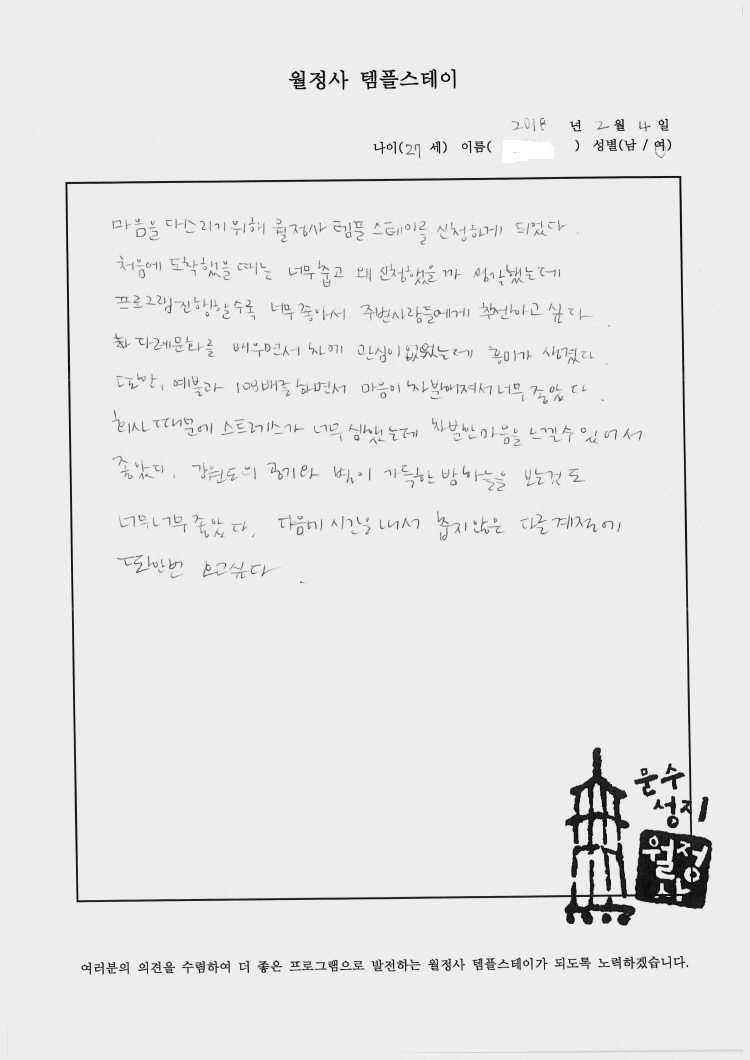 월정사 템플스테이
2018 년 2 월 4 일
나이(27 세) 이름( ) 성별(남 / 여)
마음을 다스리기 위해 월정사 템플 스테이를 신청하게 되었다.
처음에 도착했을 때는 너무 춥고 왜 신청했을까 생각했는데
프로그램 진행할수록 너무 좋아서 주변사람들에게 추천하고 싶다.
다례문화를 배우면서 차에 관심이 없었는데 흥미가 생겼다.
또한, 예불과 108배를 하면서 마음이 차분해져서 너무 좋았다.
회사 때문에 스트레스가 너무 심했는데 차분한 마음을 느낄수 있어서
좋았다. 강원도의 공기와 별이 가득한 밤하늘을 보는것도
너무너무 좋았다. 다음에 시간을 내서 춥지않은 다른 계절에
또한번 오고싶다.
문수
성지
월정
사
여러분의 의견을 수렴하여 더 좋은 프로그램으로 발전하는 월정사 템플스테이가 되도록 노력하겠습니다.